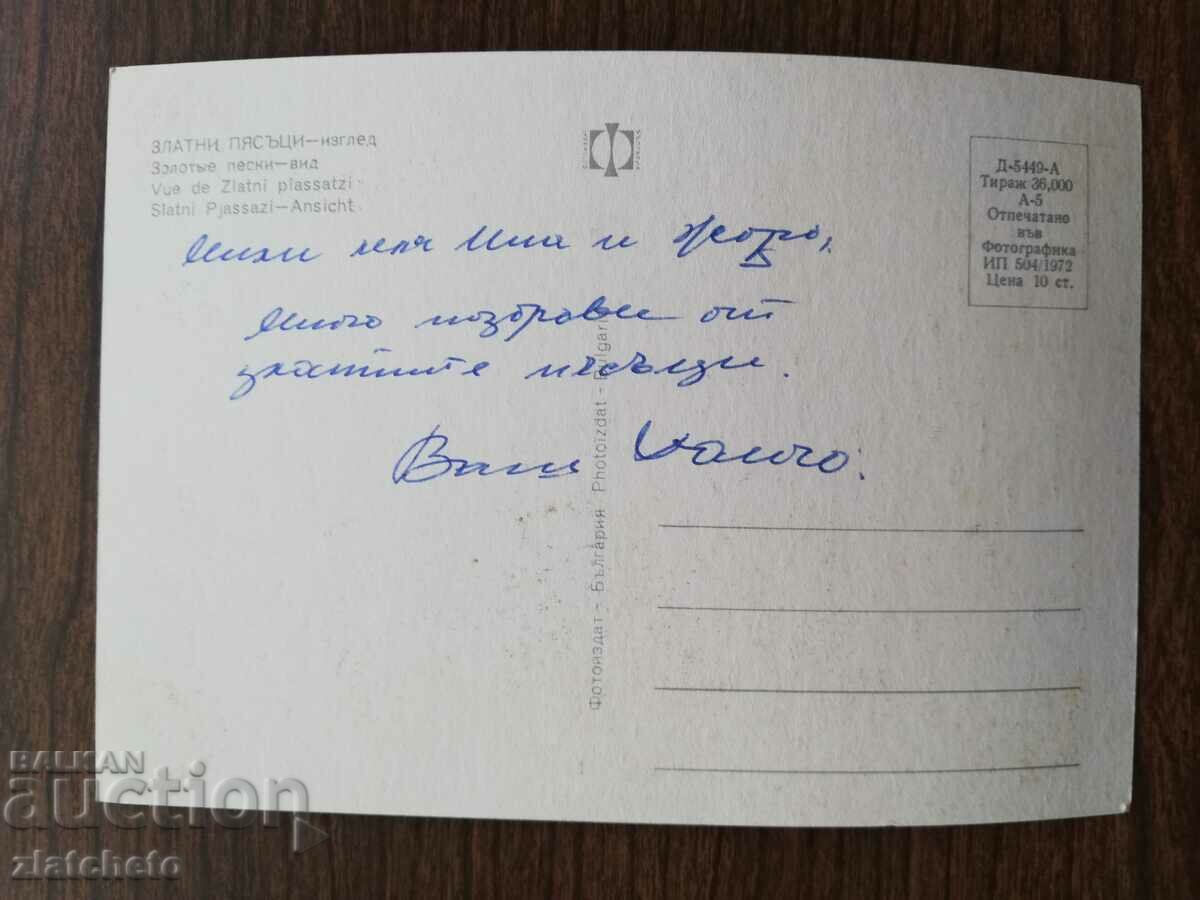 ЗЛАТНИ ПЯСЪЦИ—изглед
Золотые пески—вид
Vue de Zlatni piassatzi
Slatni Pjassazi—Ansicht
Д-5449-А
Тираж 36,000
А-5
Отпечатано
във
Фотографика
ИП 504/1972
Цена 10 ст.
Мили и Жоро,
Много поздрави от
златните пясъци.
Ваш
Фотоиздат - България Photoizdat - Bulgar
BALKAN
auction
zlatcheto